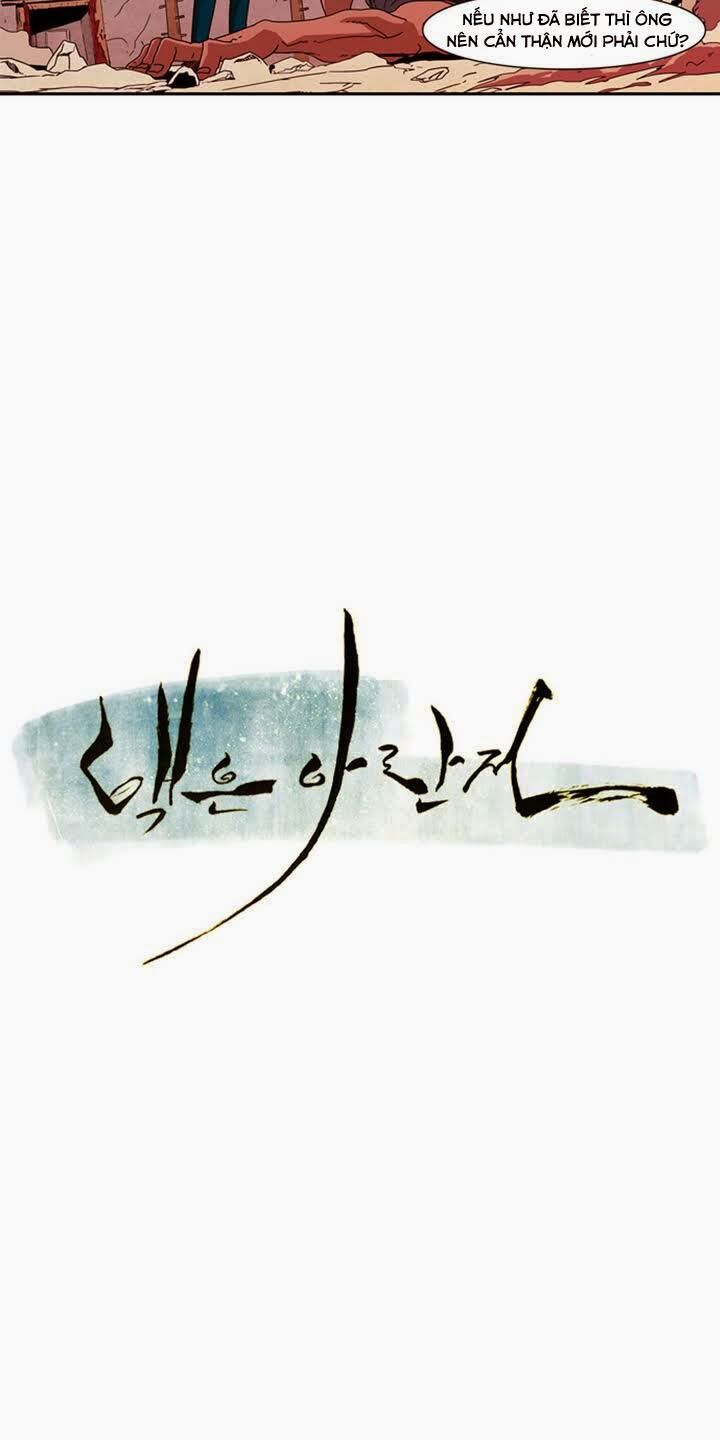 NẾU NHƯ ĐÃ BIẾT THÌ ÔNG
NÊN CẨN THẬN MỚI PHẢI CHỨ?
백은 아란전